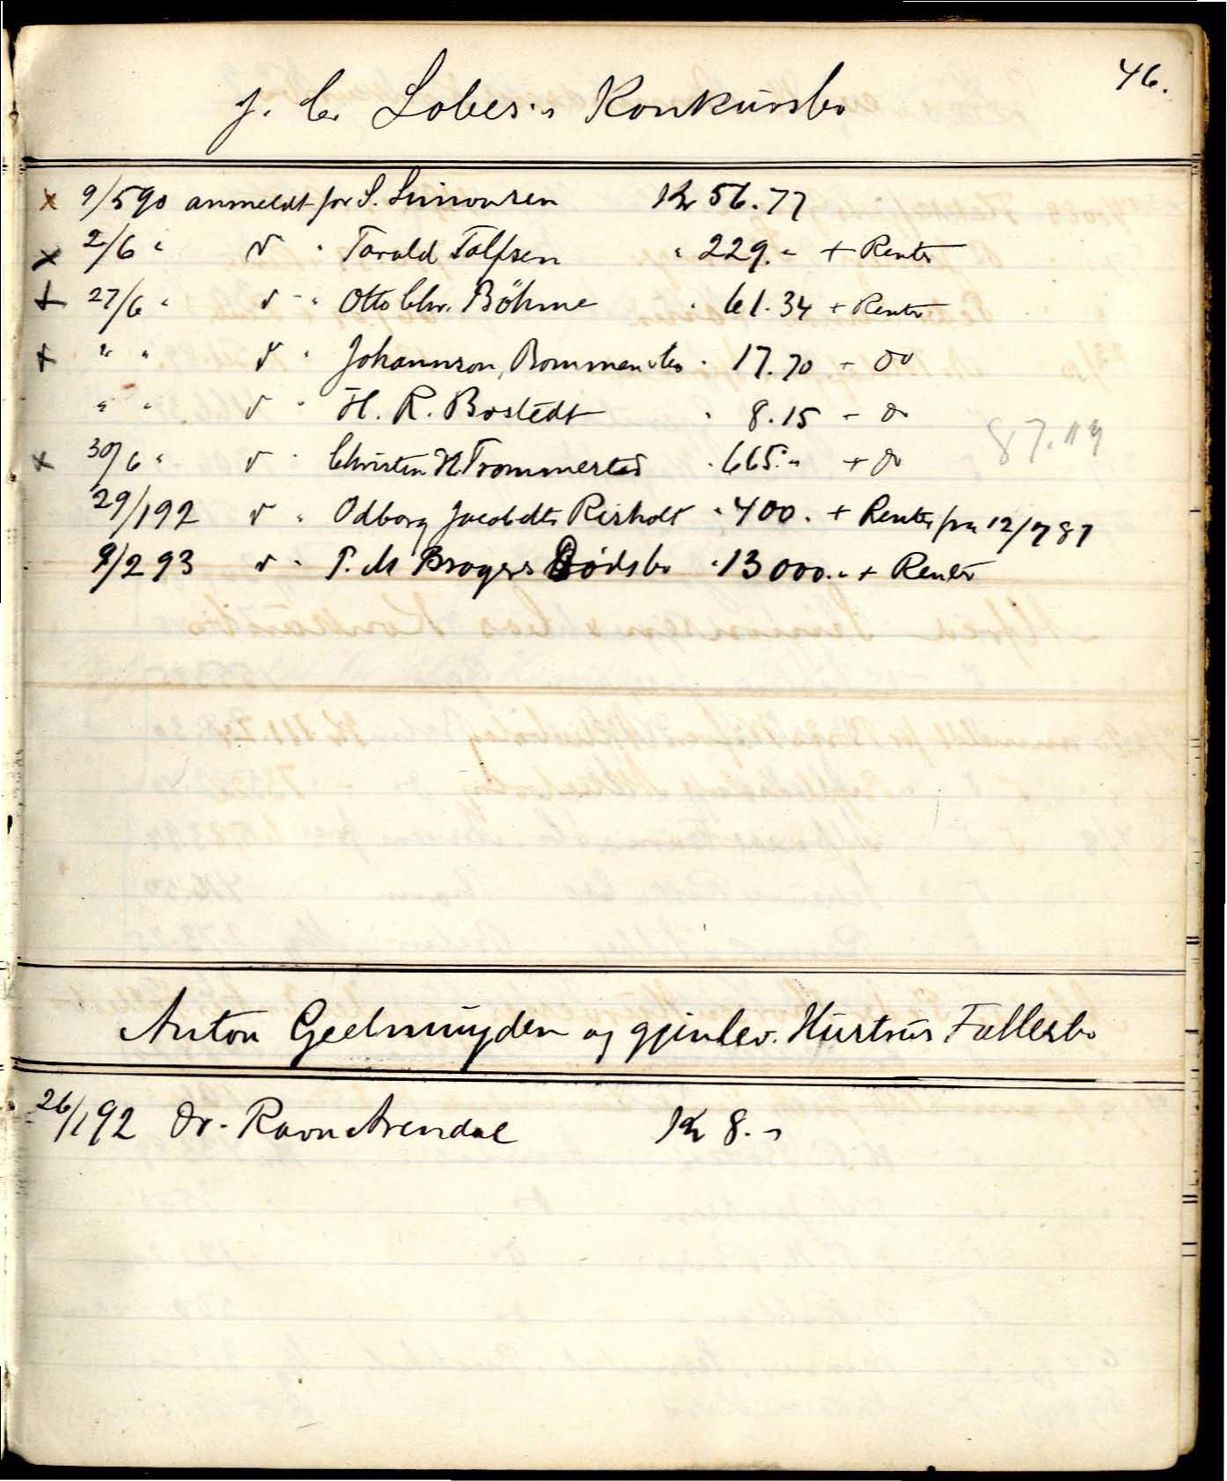 46.
J. C. Lobes's Konkursbo
x 9/5 90 anmeldt for S. Simonsen Kr 56.77
x 2/6 " √ " Torald Tolfsen " 229.- + Renter
+ 27/6 " √ - " Otto Chr. Böhme " 61.34 + Renter
+ " " √ " Johannson, " 17.70 - do
" " √ " H. R. Bostedt " 8.15 - do
x 30/6 " √ " Christen H Trommestad " 665.- + do
29/1 92 √ " Odborg Jacobdtr Risholt " 400. + Renter fra 12/7 87
9/2 93 √ " T. M Brøgers Dødsbo " 13000.- + Renter
Anton Geelmuyden og gjenlev. Hustrus Fællesbo
26/1 92 Dr. Ravn Arendal Kr 8.-